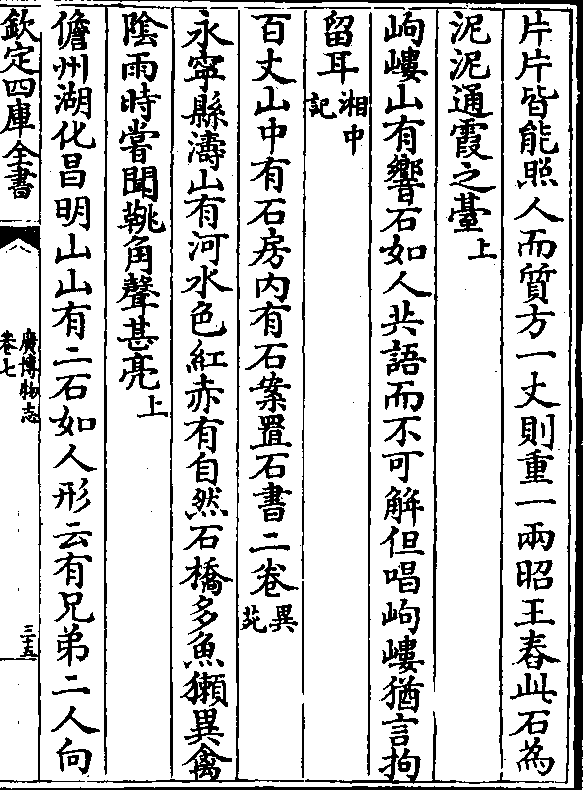 片片皆能照人而質方一丈則重一兩昭王舂此石為
泥泥通霞之臺上
岣嶁山有響石如人共語而不可解但唱岣嶁猶言拘
留耳湘中記
百丈山中有石房内有石案置石書二卷異苑
永寧縣濤山有河水色紅赤有自然石橋多魚獺異禽
陰雨時嘗聞鞉角聲甚亮上
儋州湖化昌明山山有二石如人形云有兄弟二人向
欽定四庫全書
廣博物志
卷七
三十五